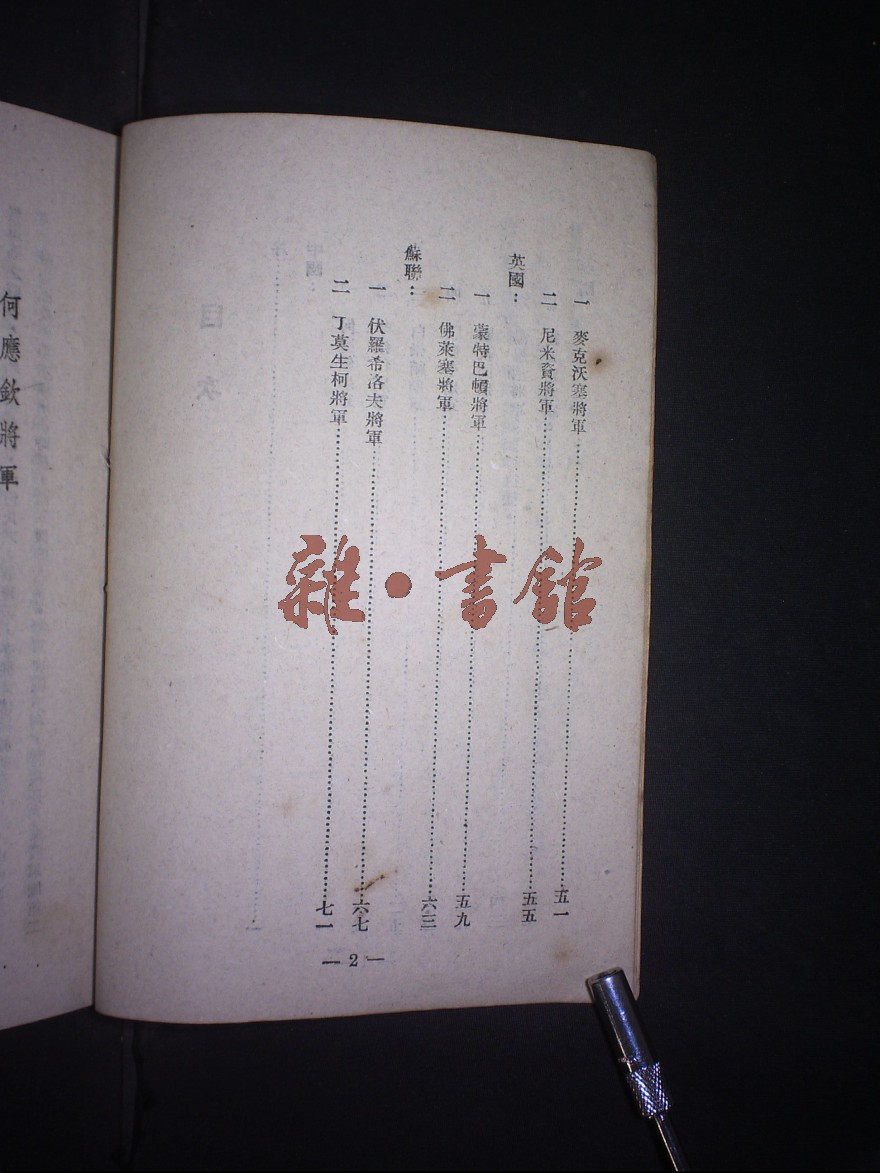 一　麥克沃塞將軍……五一
二　尼米資將軍……五五
英國：
一　蒙特巴頓將軍……五九
二　佛萊塞將軍……六三
蘇聯：
一　伏羅希洛夫將軍……六七
二　丁莫生柯將軍……七一
— 2 —
何應欽將軍
雜·書館